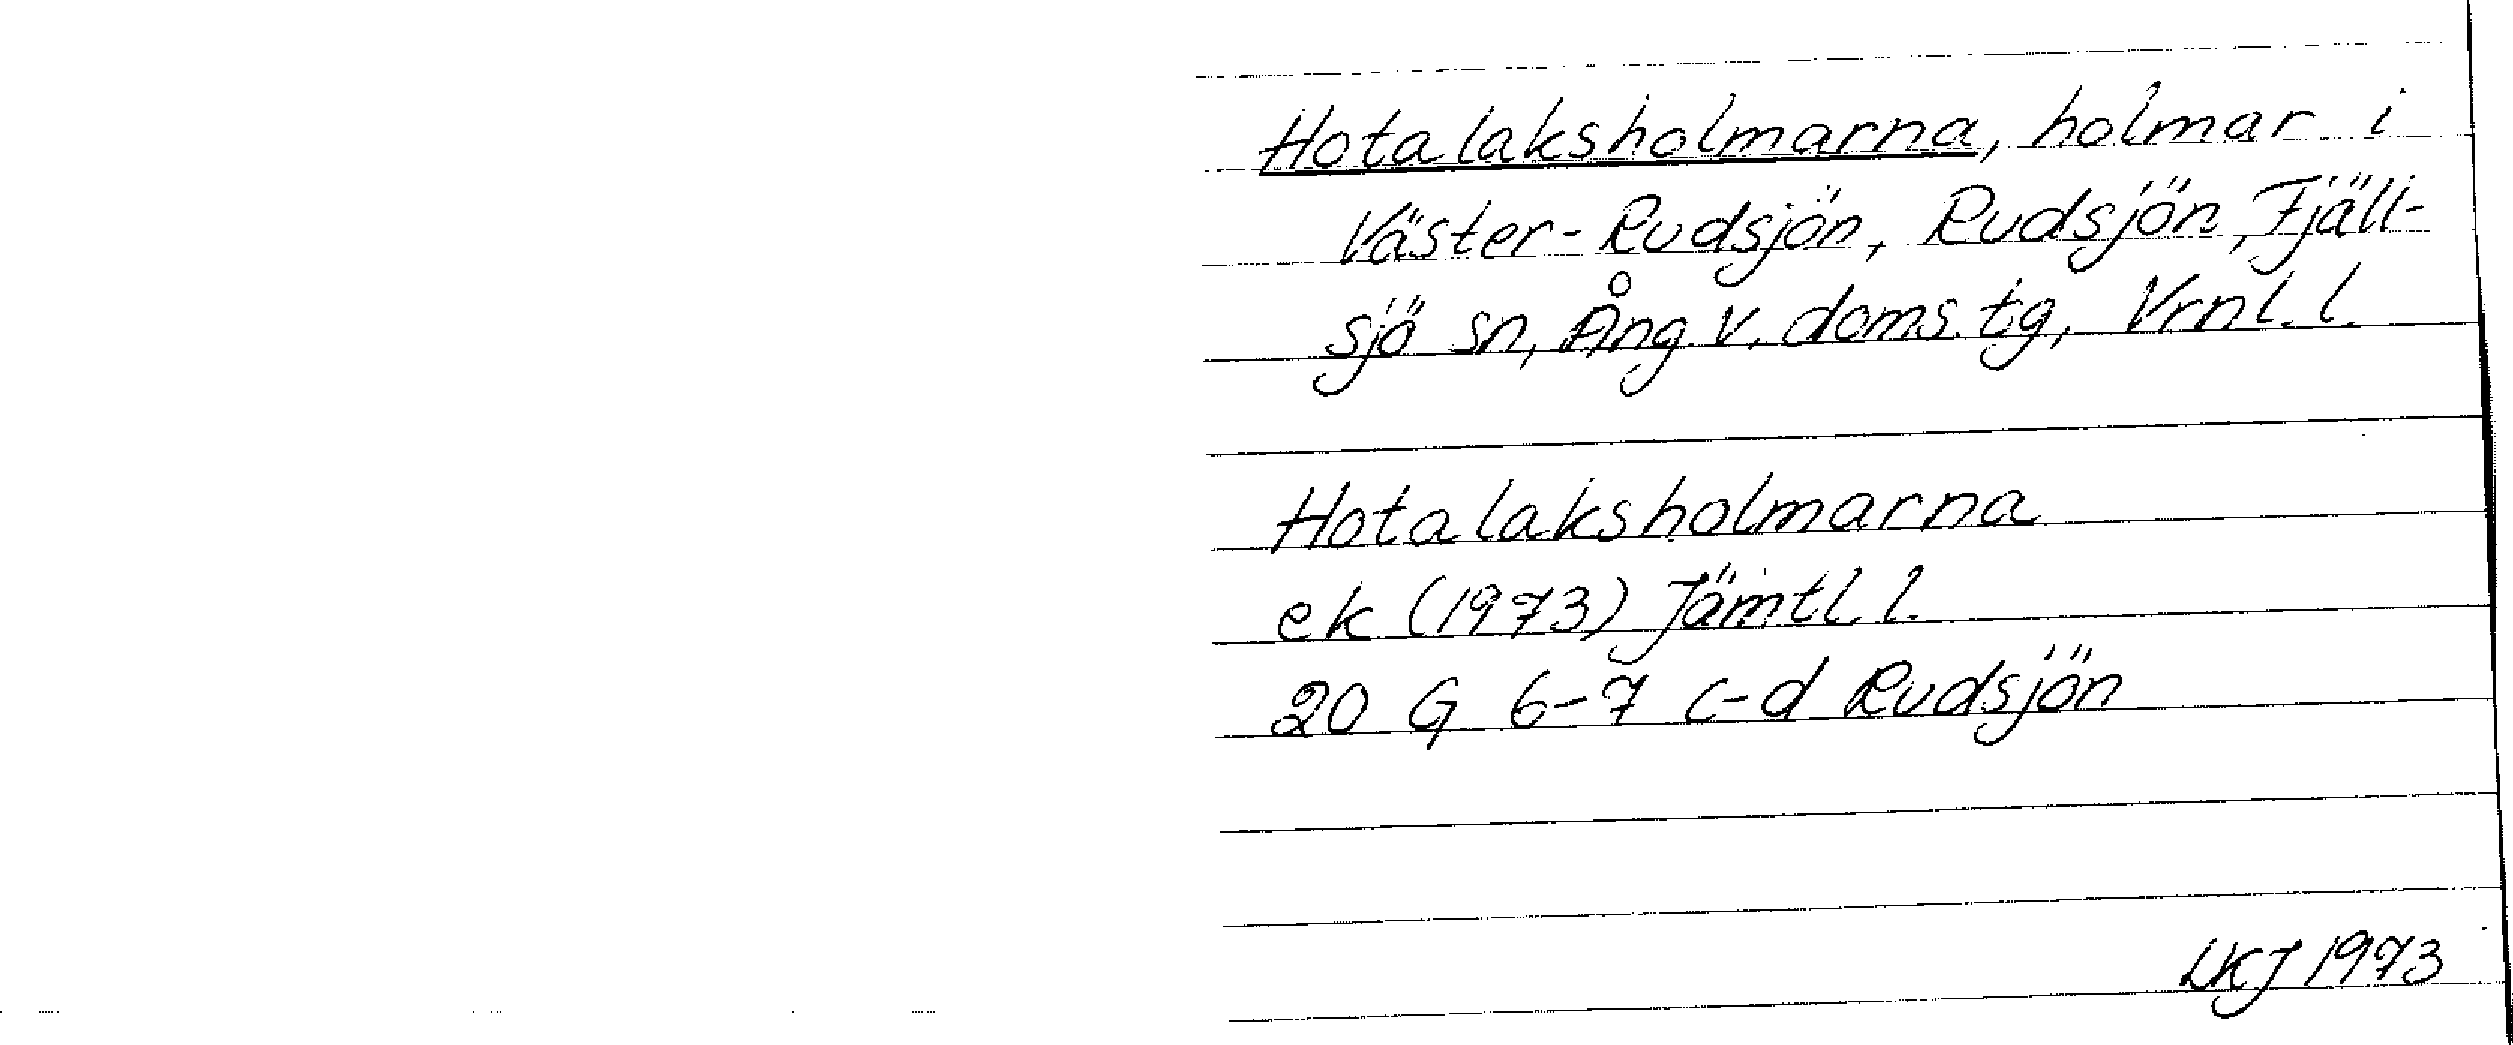 Hotalaksholmarna, holmar i
Väster-Rudsjön, Rudsjön, Fjäll-
sjö sn, Ång. v. doms. tg, Vrnl. l.
Hotalaksholmarna
ek (1973) Jämtl. l.
20 G 6-7 c-d Rudsjön
LKJ 1973